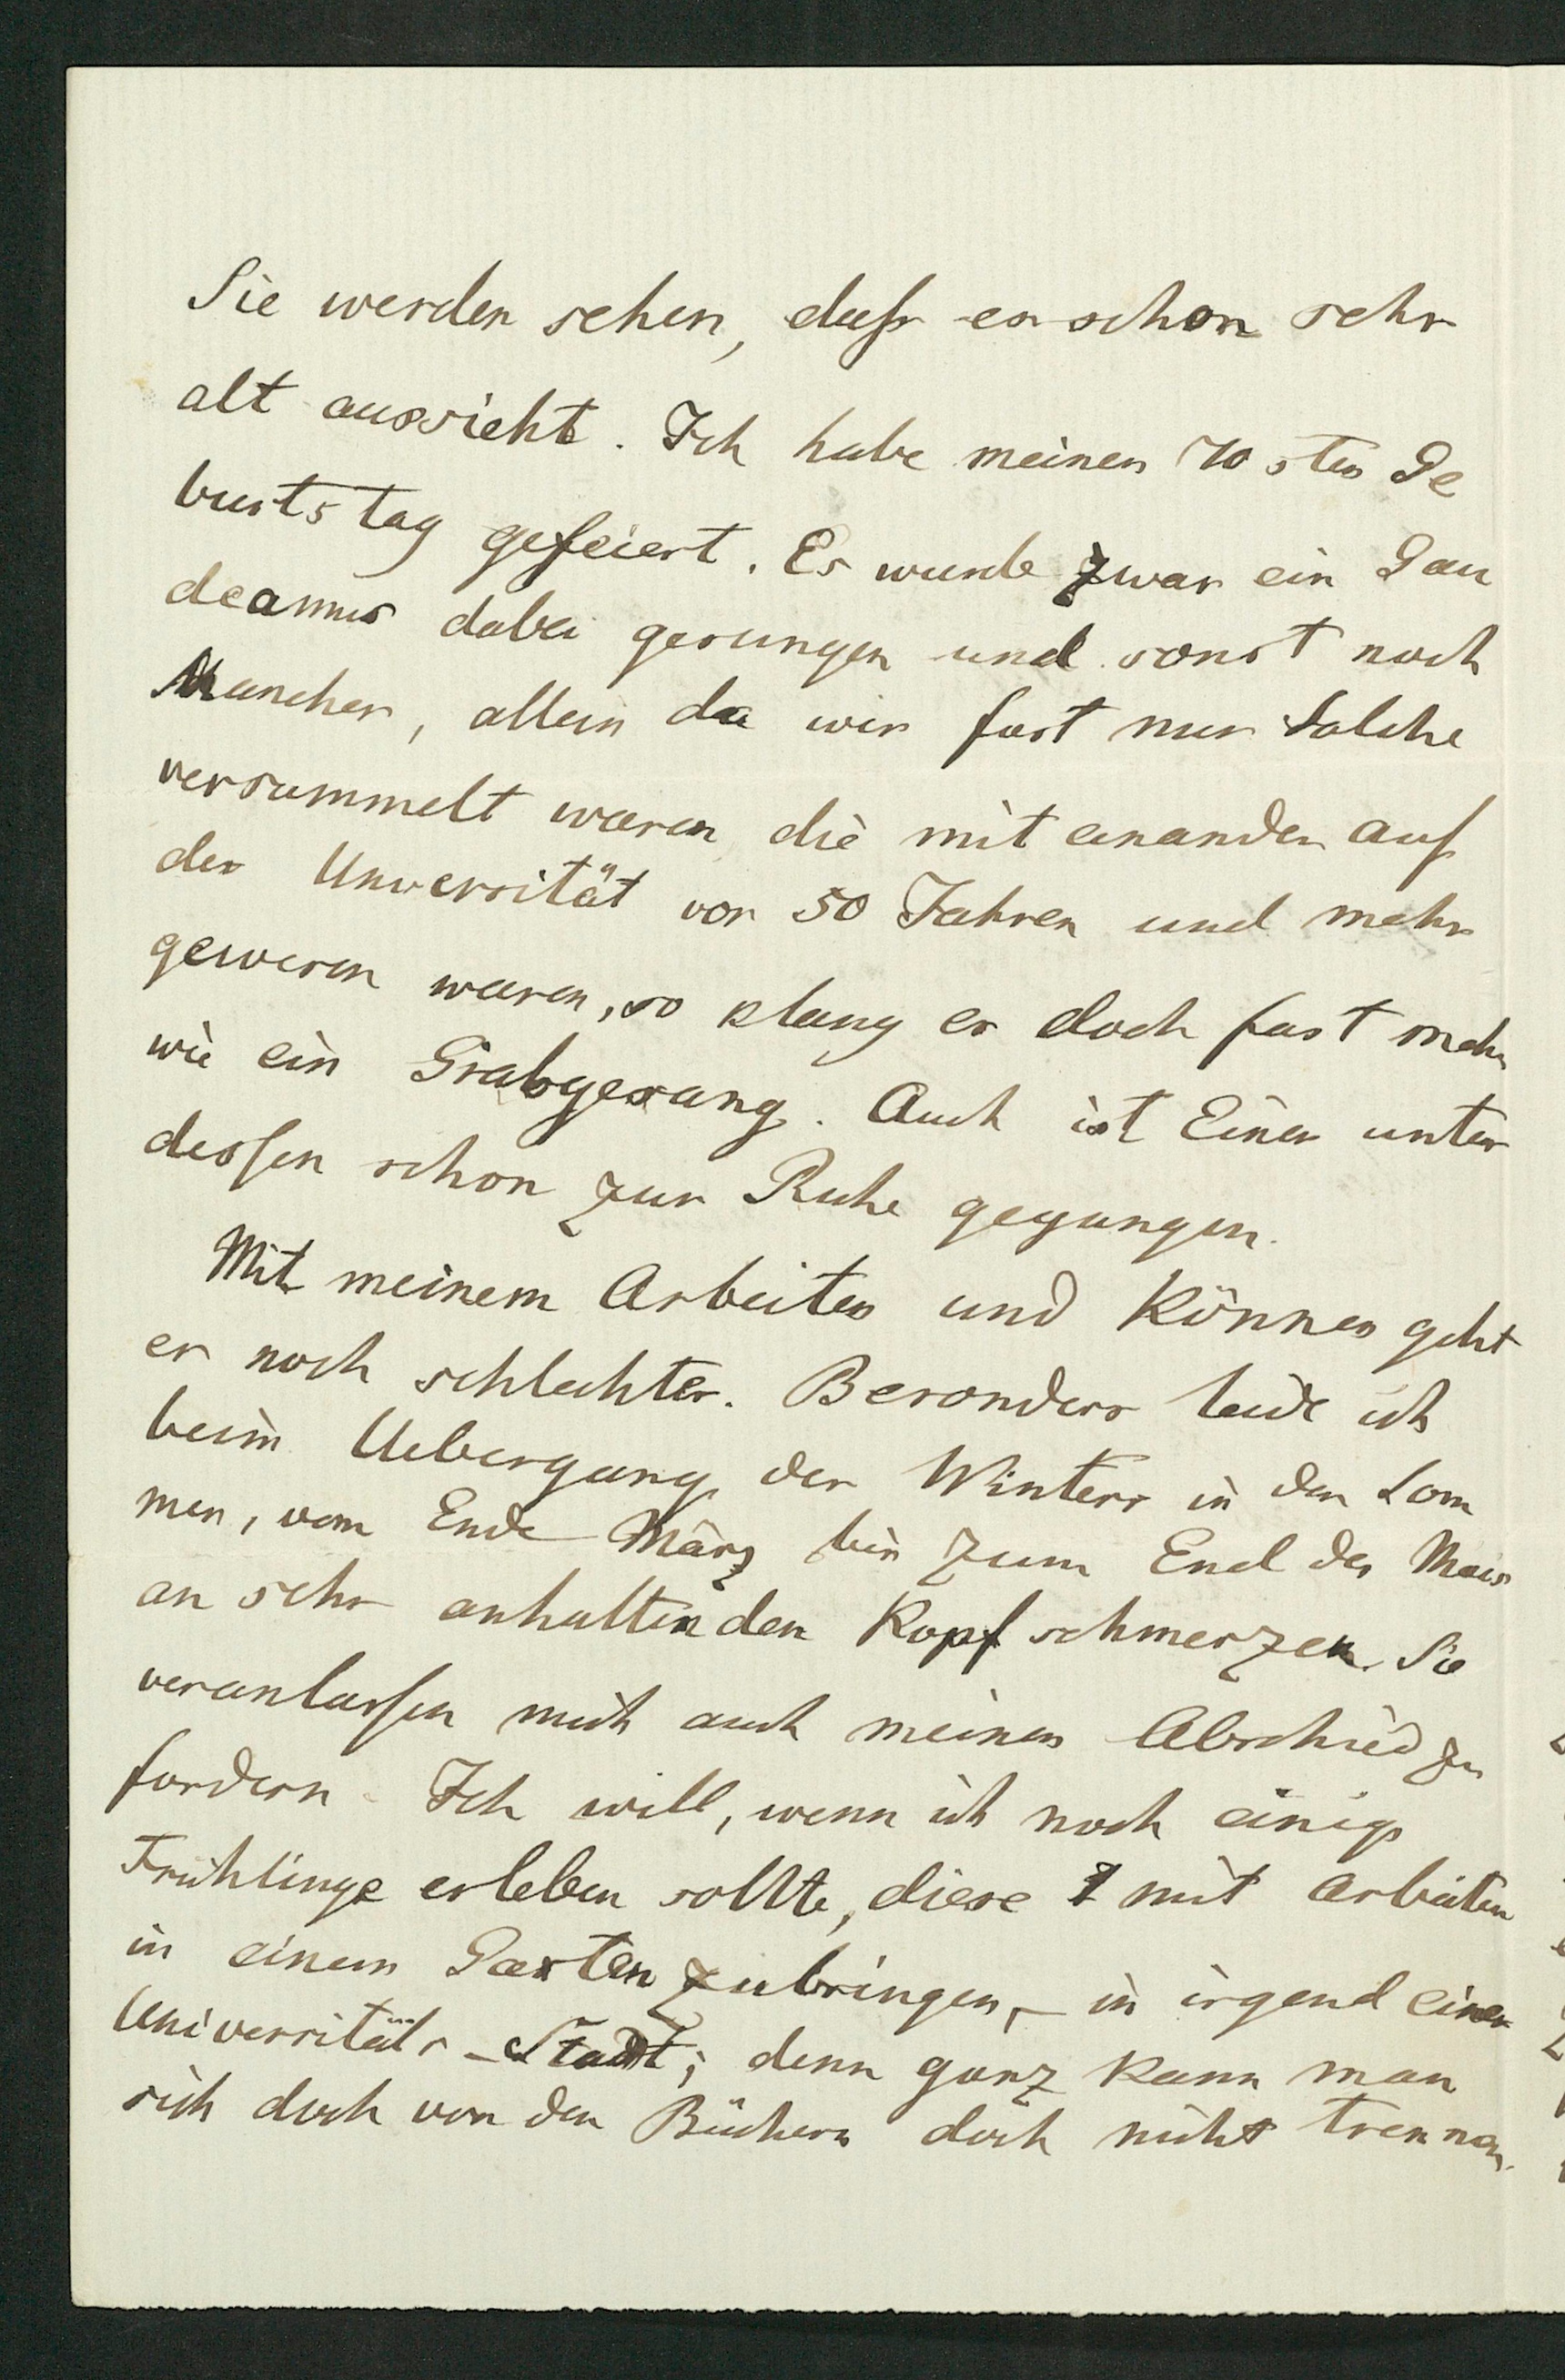 Sie werden sehen, daß es schon sehr
alt aussieht. Ich habe meinen 70sten Ge
burtstag gefeiert. Es wurde zwar ein Gau
deamus dabei gesungen und sonst noch
Manches, allein da wir fast nur Solche
versammelt waren die mit einander auf
der Unversität vor 50 Jahren und mehr
gewesen waren, so klang es doch fast mehr
wie ein Grabgesang. Auch ist Einer unter
dessen schon zur Ruhe gegangen.
Mit meinem Arbeiten und Können geht
es noch schlechter. Besonders leide ich
beim Uebergang des Winters in den Som
mer, vom Ende März bis zum End des Mais
an sehr anhaltenden Kopfschmerzen. Sie
veranlassen mich auch meinen Abschied zu
fordern. Ich will, wenn ich noch einige
Frühlinge erleben sollte, diese mit Arbeiten
in einem Garten zubringen, – in irgend einer
Universitäts-Stadt; denn ganz kann man
sich doch von den Büchern doch nicht trennen.